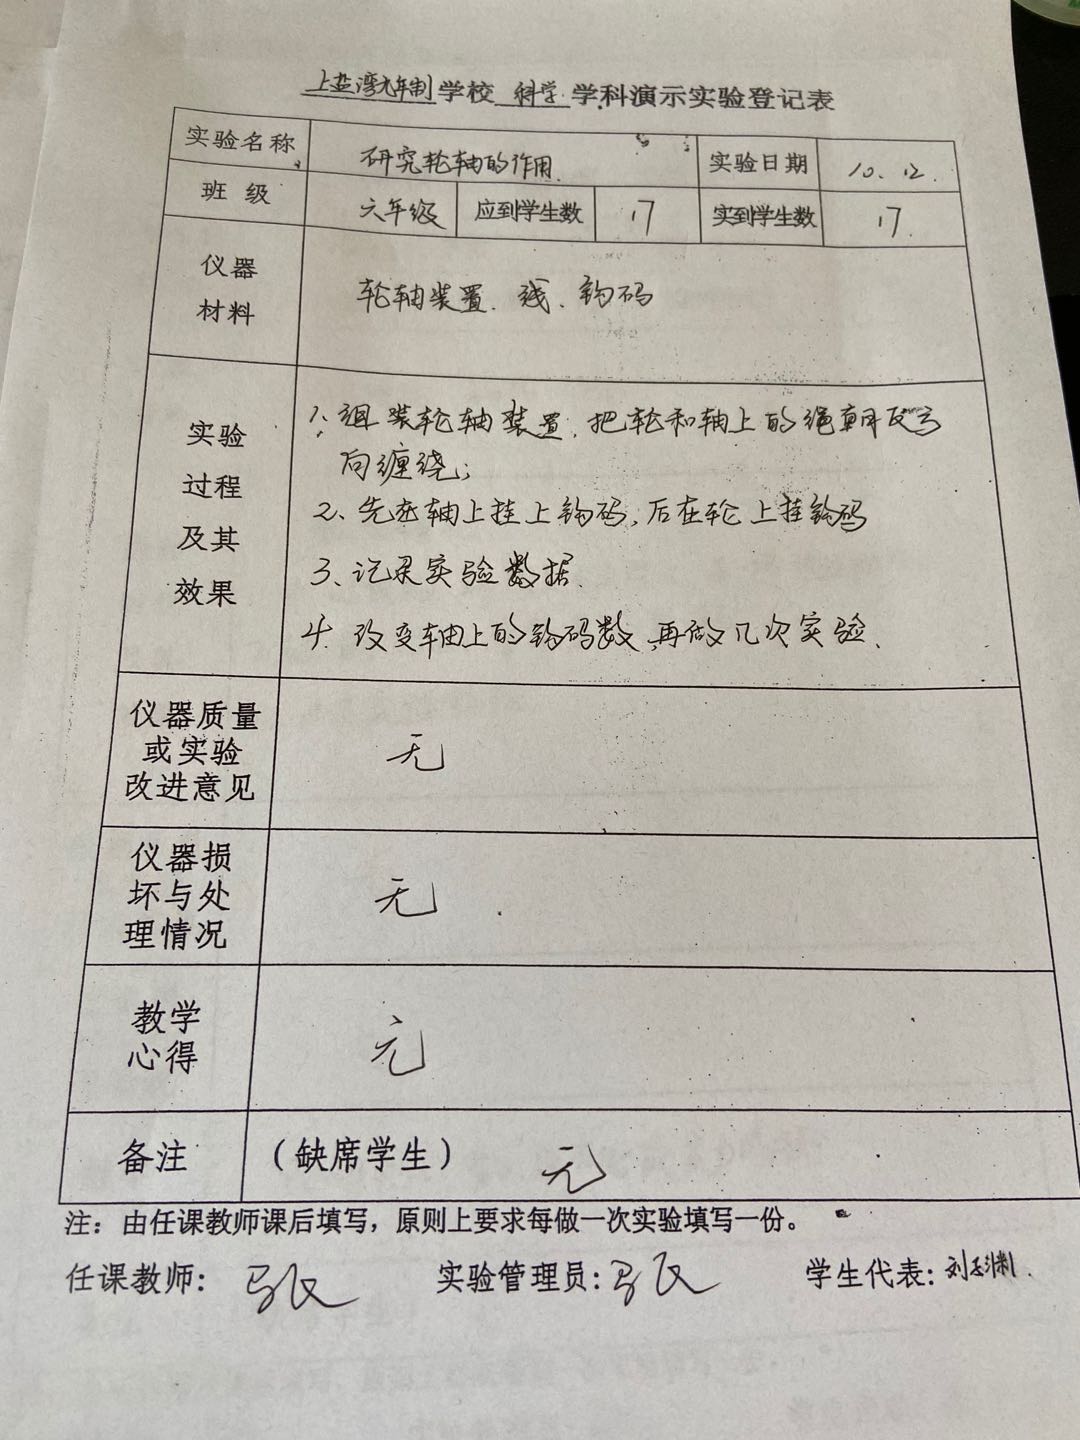 上盐湾九年制学校 科学 学科演示实验登记表
实验名称 研究轮轴的作用. 实验日期 10.12.
班级 六年级 应到学生数 17 实到学生数 17.
仪器
材料
轮轴装置. 线. 钩码
实验
过程
及其
效果
1、组装轮轴装置,把轮和轴上的绳朝反方
向缠绕;
2、先在轴上挂上钩码,后在轮上挂钩码
3、记录实验数据.
4.改变轴上的钩码数,再做几次实验.
仪器质量
或实验
改进意见
无
仪器损
坏与处
理情况
无
教学
心得
无
备注 (缺席学生) 无
注:由任课教师课后填写,原则上要求每做一次实验填写一份。
任课教师: 实验管理员: 学生代表: